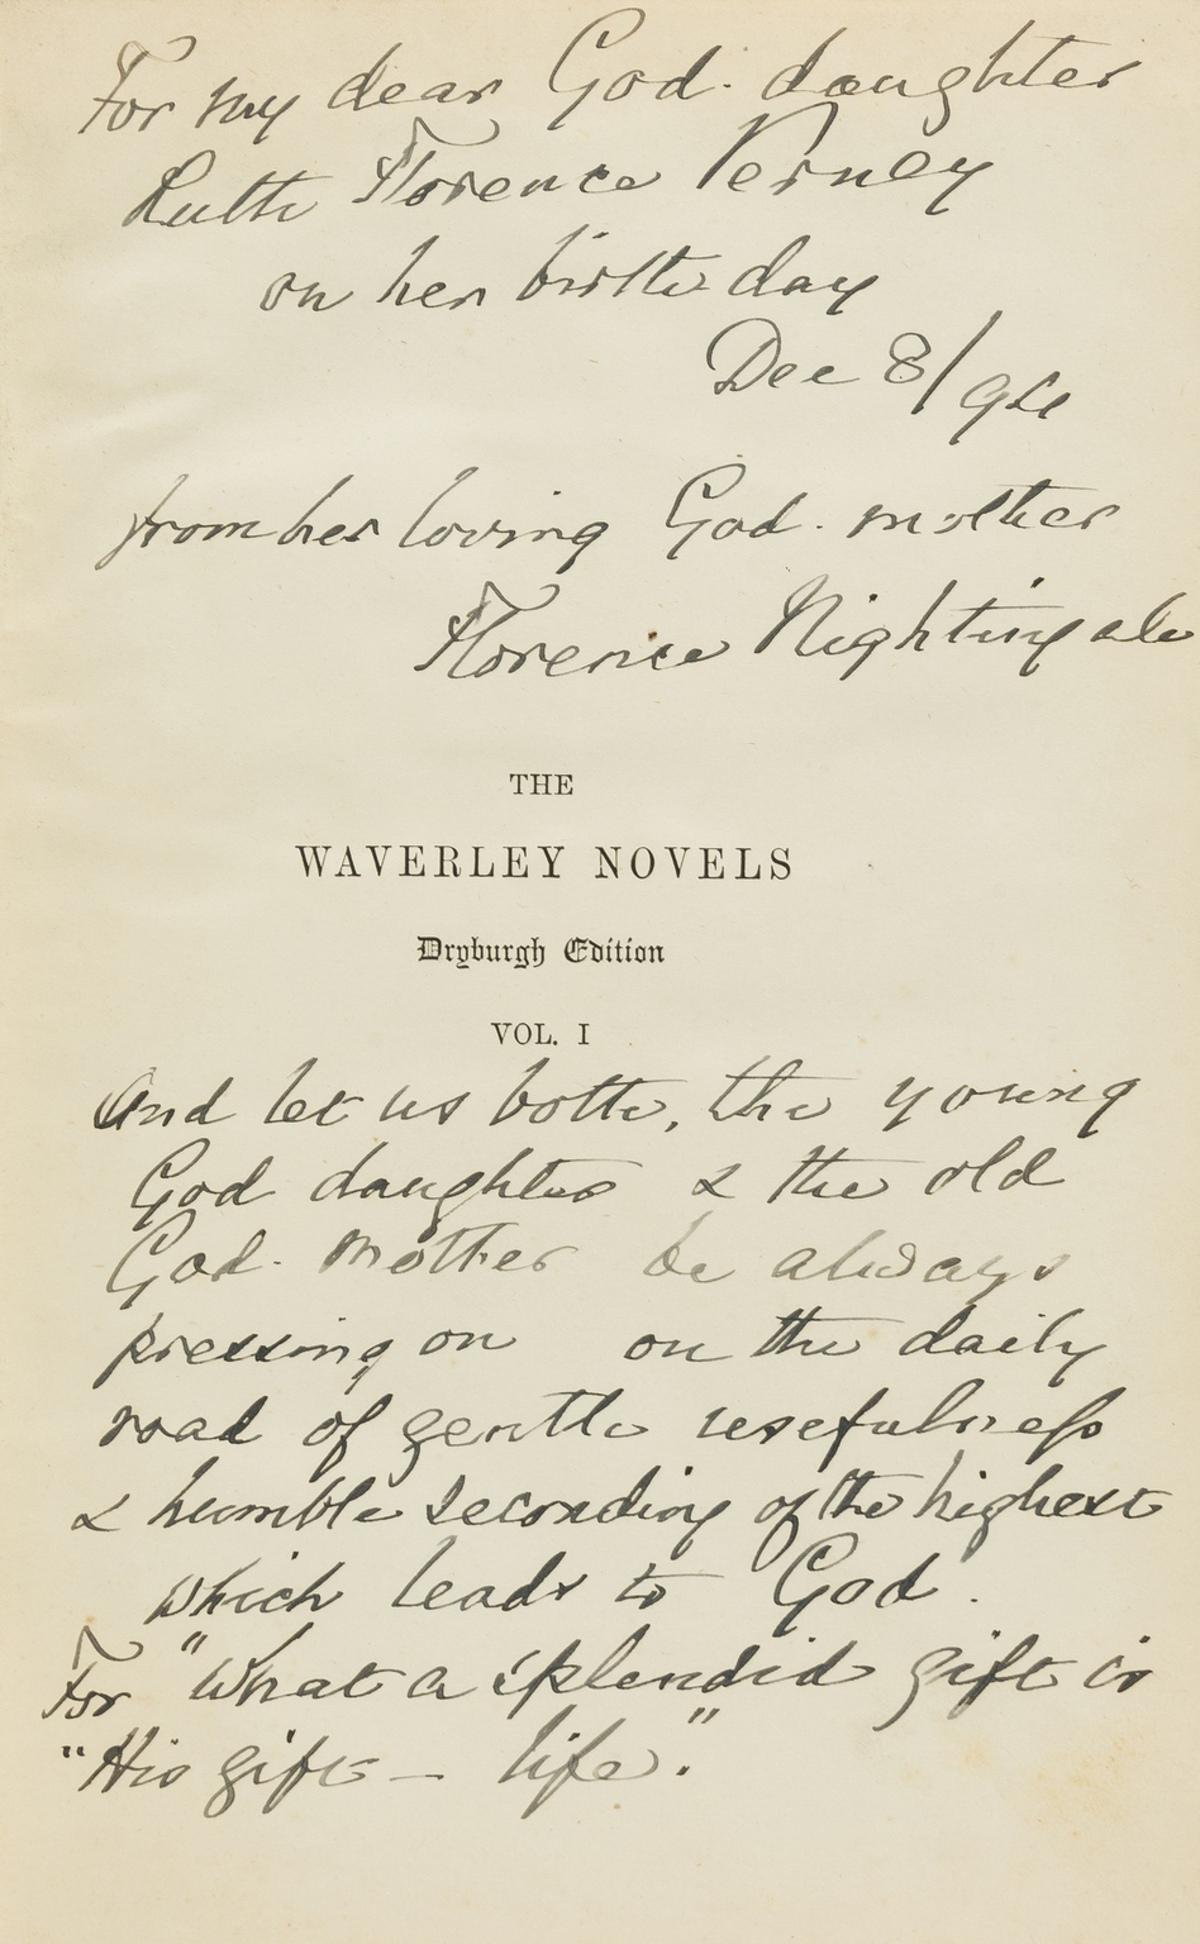 For my dear God-daughter
Ruth Florence Verney
on her birthday
Dec 8/94
from her loving God-mother
Florence Nightingale
THE
WAVERLEY NOVELS
Dryburgh Edition
VOL. I
And let us both, the young
God daughter & the old
God-mother be always
pressing on on the daily
road of gentle usefulness
& humble seconding of the highest
which leads to God.
For "What a splendid gift is
"His gift – life."